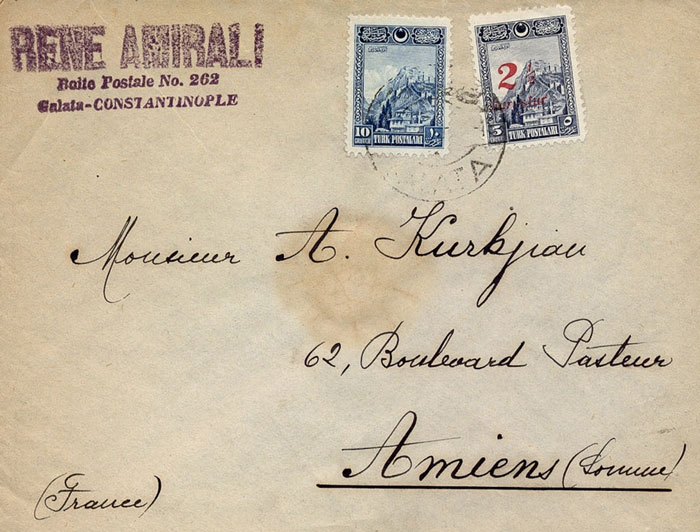 RENE AMIRALI
Boite Postale No. 262
Galata-CONSTANTINOPLE
10
TÜRK POSTALARI
2
5
TÜRK POSTALARI
Monsieur A. Kurkjian
62, Boulevard Pasteur
Amiens (Somme)
(France)